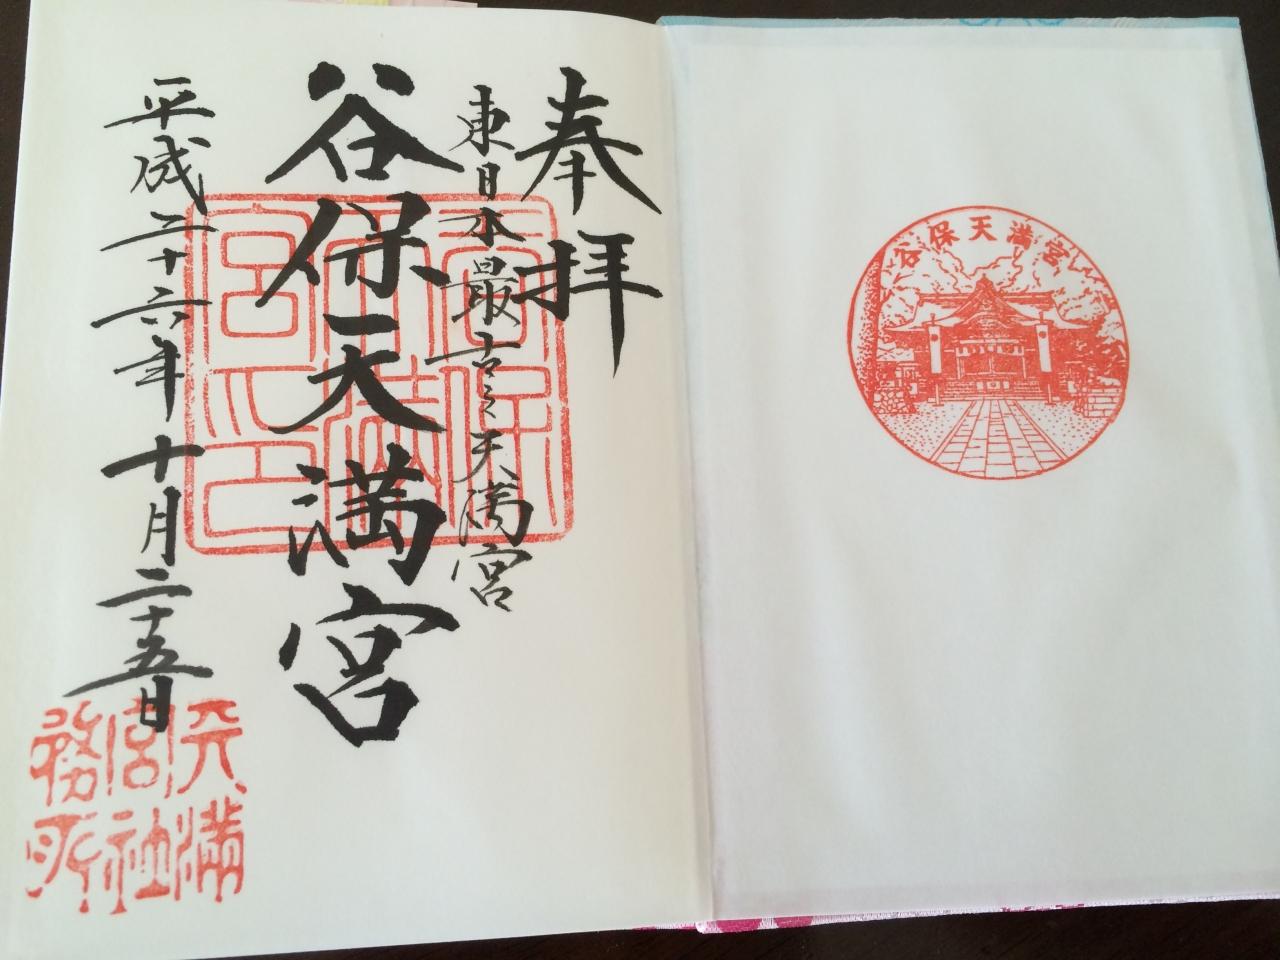 谷保天満宮
奉拝
東日本最古之天満宮
谷保天満宮
平成二十六年十月二十五日
谷保
天満
宮印
天満
宮社
務所